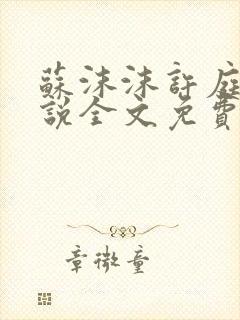 蘇沫沫許庭
說全文免費
章微童